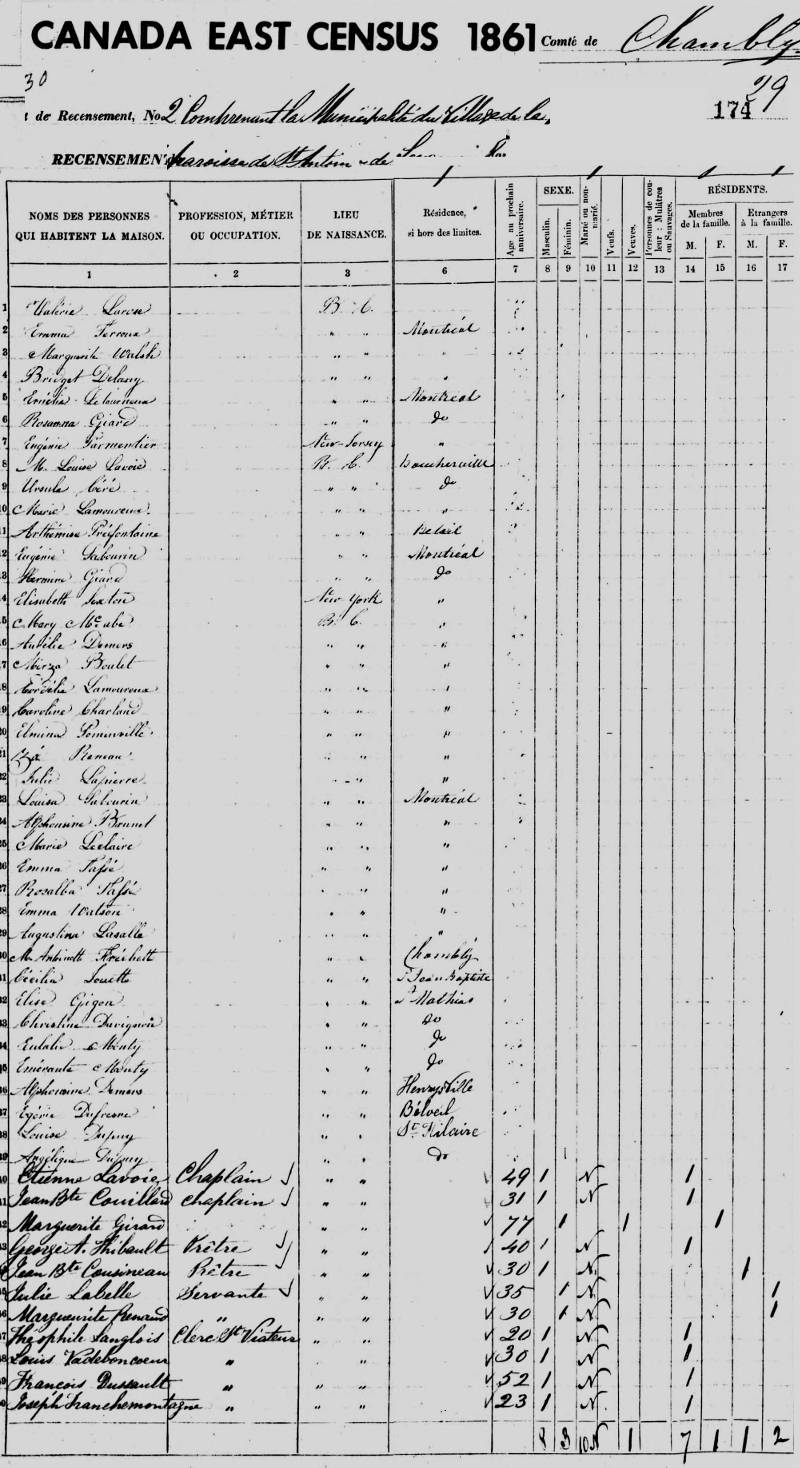 CANADA EAST CENSUS 1861 Comté de Chambly
30
29
de Recensement, No 2 Comprenant la Municipalité du Village de la
174
RECENSEMEN Paroisse de St Antoine de
NOMS DES PERSONNES QUI HABITENT LA MAISON. PROFESSION, MÉTIER OU OCCUPATION. LIEU DE NAISSANCE. Résidence, si hors des limites. Age au prochain anniversaire. SEXE. Masculin. Féminin. Marié ou non-marié. Veufs. Veuves. Personnes de couleur: Mulâtres ou Sauvages. RÉSIDENTS. Membres de la famille. M. F. Etrangers à la famille. M. F.
1 2 3 6 7 8 9 10 11 12 13 14 15 16 17
1 Valérie B. C.
2 Emma " " Montréal
3 Marguerite Walsh " " "
4 Bridget Delany " " "
5 " " Montréal
6 Rosanna Giard " " do
7 Eugénie Parmentier New-Jersey "
8 M. Louise Lavoie B. C. Boucherville
9 Ursula Céré " " do
10 Marie Lamoureux " " "
11 Arthémise Préfontaine " " Beloeil
12 Eugénie Sabourin " " Montréal
13 Hermine Giard " " do
14 Elisabeth Sexton New York "
15 Mary McCabe B. C. "
16 Aurélie Demers " " "
17 Boulet " " "
18 Cordélie Lamoureux " " "
19 Caroline Charland " " "
20 Elmina Sommerville " " "
21 " " "
22 Julie Lapierre " " "
23 Louisa Sabourin " " Montréal
24 Alphonsine Brunet " " "
25 Marie Leclaire " " "
26 Emma Passé " " "
27 Rosalba Passé " " "
28 Emma Watson " " "
29 Augustina Lasalle " " "
30 M. Antoinette Fréchette " " Chambly
31 Cécilia " " St Jean Baptiste
32 Elise Gigon " " St Mathias
33 Christine " " do
34 Eulalie Monty " " do
35 Emérante Monty " " do
36 Alphonsine Demers " " Henryville
37 Egérie Dufresne " " Béloeil
38 Louise Dupuy " " St Hilaire
39 Angélique Dupuy " " do
40 Etienne Lavoie Chaplain " " 49 1 N 1
41 Jean Bte Couillard chaplain " " 31 1 N 1
42 Marguerite Girard " " 77 1 1 1
43 George A. Thibault Prêtre " " 40 1 N 1
44 Jean Bte Cousineau Prêtre " " 30 1 N 1
45 Julie Labelle Servante " " 35 1 N 1
46 Marguerite " " " 30 1 N 1
47 Théophile Langlois Clerc St Viateur " " 20 1 N 1
48 Louis Vadeboncoeur " " " 30 1 N 1
49 Francois Dussault " " " 52 1 N 1
50 Joseph Franchemontagne " " " 23 1 N 1
8 3 10 N 1 7 1 1 2